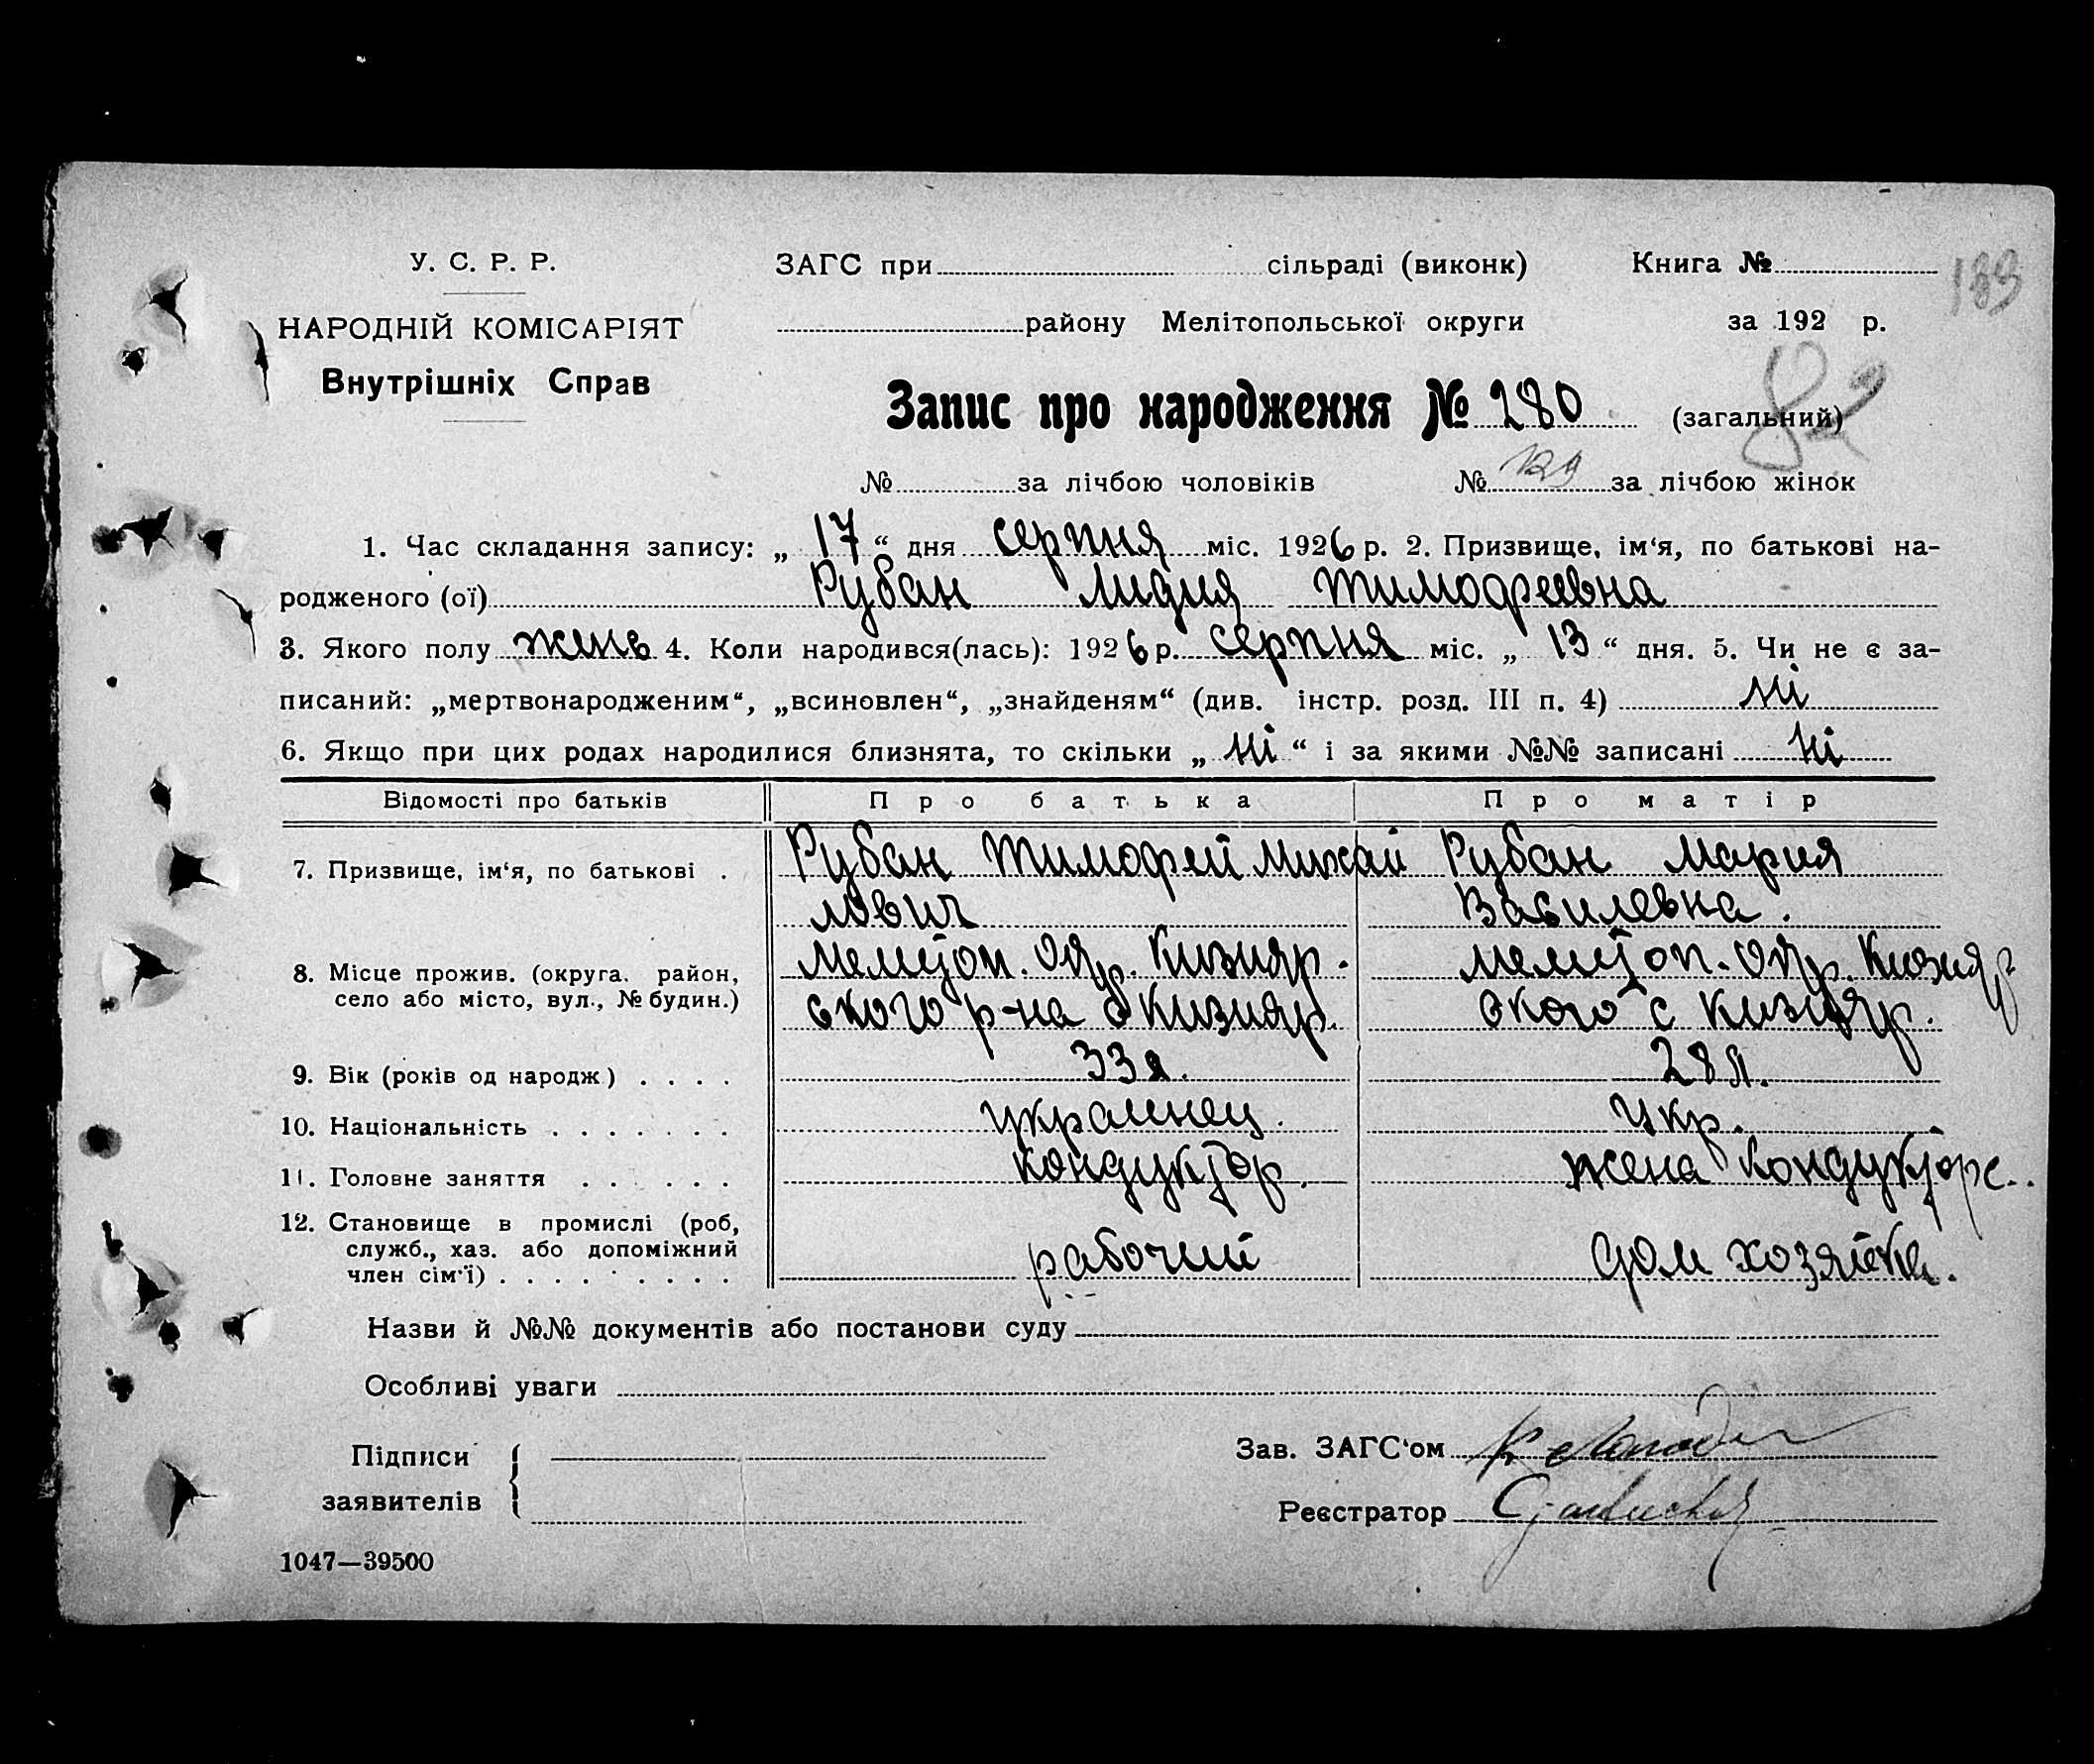 У. С. Р. Р.
НАРОДНІЙ КОМІСАРІЯТ
Внутрішніх Справ
ЗАГС при сільраді (виконк) Книга №
183
району Мелітопольської округи за 192 р.
82
Запис про народження № 280 (загальний)
№ за лічбою чоловіків № 129 за лічбою жінок
1. Час складання запису: „ 17 “ дня серпня міс. 1926 р. 2. Призвище, ім‘я, по батькові на-
родженого (ої) Рубан Лидия Тимофеевна
3. Якого полу жень 4. Коли народився(лась): 1926 р. серпня міс. „ 13 “ дня. 5. Чи не є за-
писаний: „мертвонародженим“, „всиновлен“, „знайденям“ (див. інстр. розд. III п. 4) ні
6. Якщо при цих родах народилися близнята, то скільки „ ні “ і за якими №№ записані ні
Відомості про батьків Про батька Про матір
7. Призвище, ім‘я, по батькові . Рубан Тимофей Михай Рубан Мария
лович Василевна.
8. Місце прожив. (округа, район, Мелитоп. Окр. Кизияр. Мелитоп. Окр. Кизияр
село або місто, вул., № будин.) ского р-на с Кизияр. ского с Кизияр.
9. Вік (років од народж.) . . . . 33 л. 28 л.
10. Національність . . . . . . . украинец. Укр.
11. Головне заняття . . . . . . кондуктор. жена кондукторс..
12. Становище в промислі (роб,
служб., хаз. або допоміжний
член сім‘ї) . . . . . . . . . рабочий дом хозяйка.
Назви й №№ документів або постанови суду
Особливі уваги
Підписи
заявителів
Зав. ЗАГС‘ом
Реєстратор
1047—39500